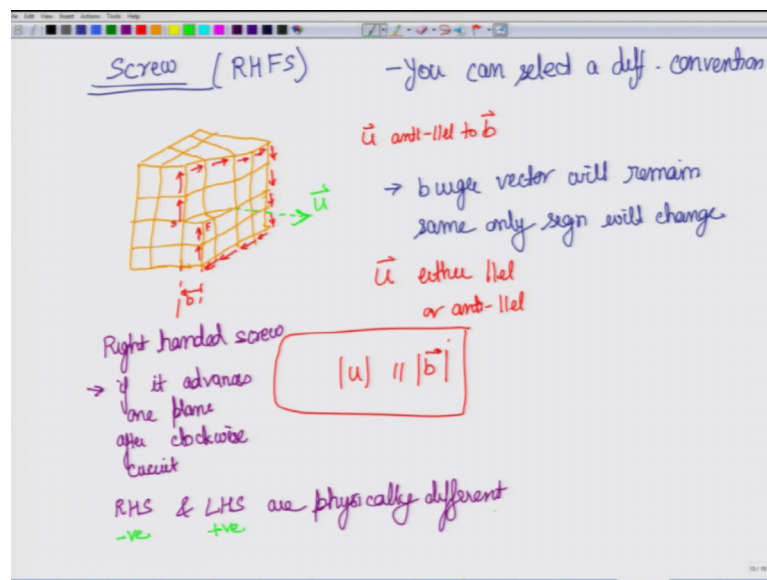 File Edit View Insert Actions Tools Help
Screw (RHFS)
- You can select a diff. convention
u⃗ anti-llel to b⃗
→ burger vector will remain
same only sign will change
u⃗
S F
b⃗
u⃗ either llel
or anti-llel
Right handed screw
→ if it advances
one plane
after clockwise
circuit
|u| // |b⃗|
RHS & LHS are physically different
-ve +ve